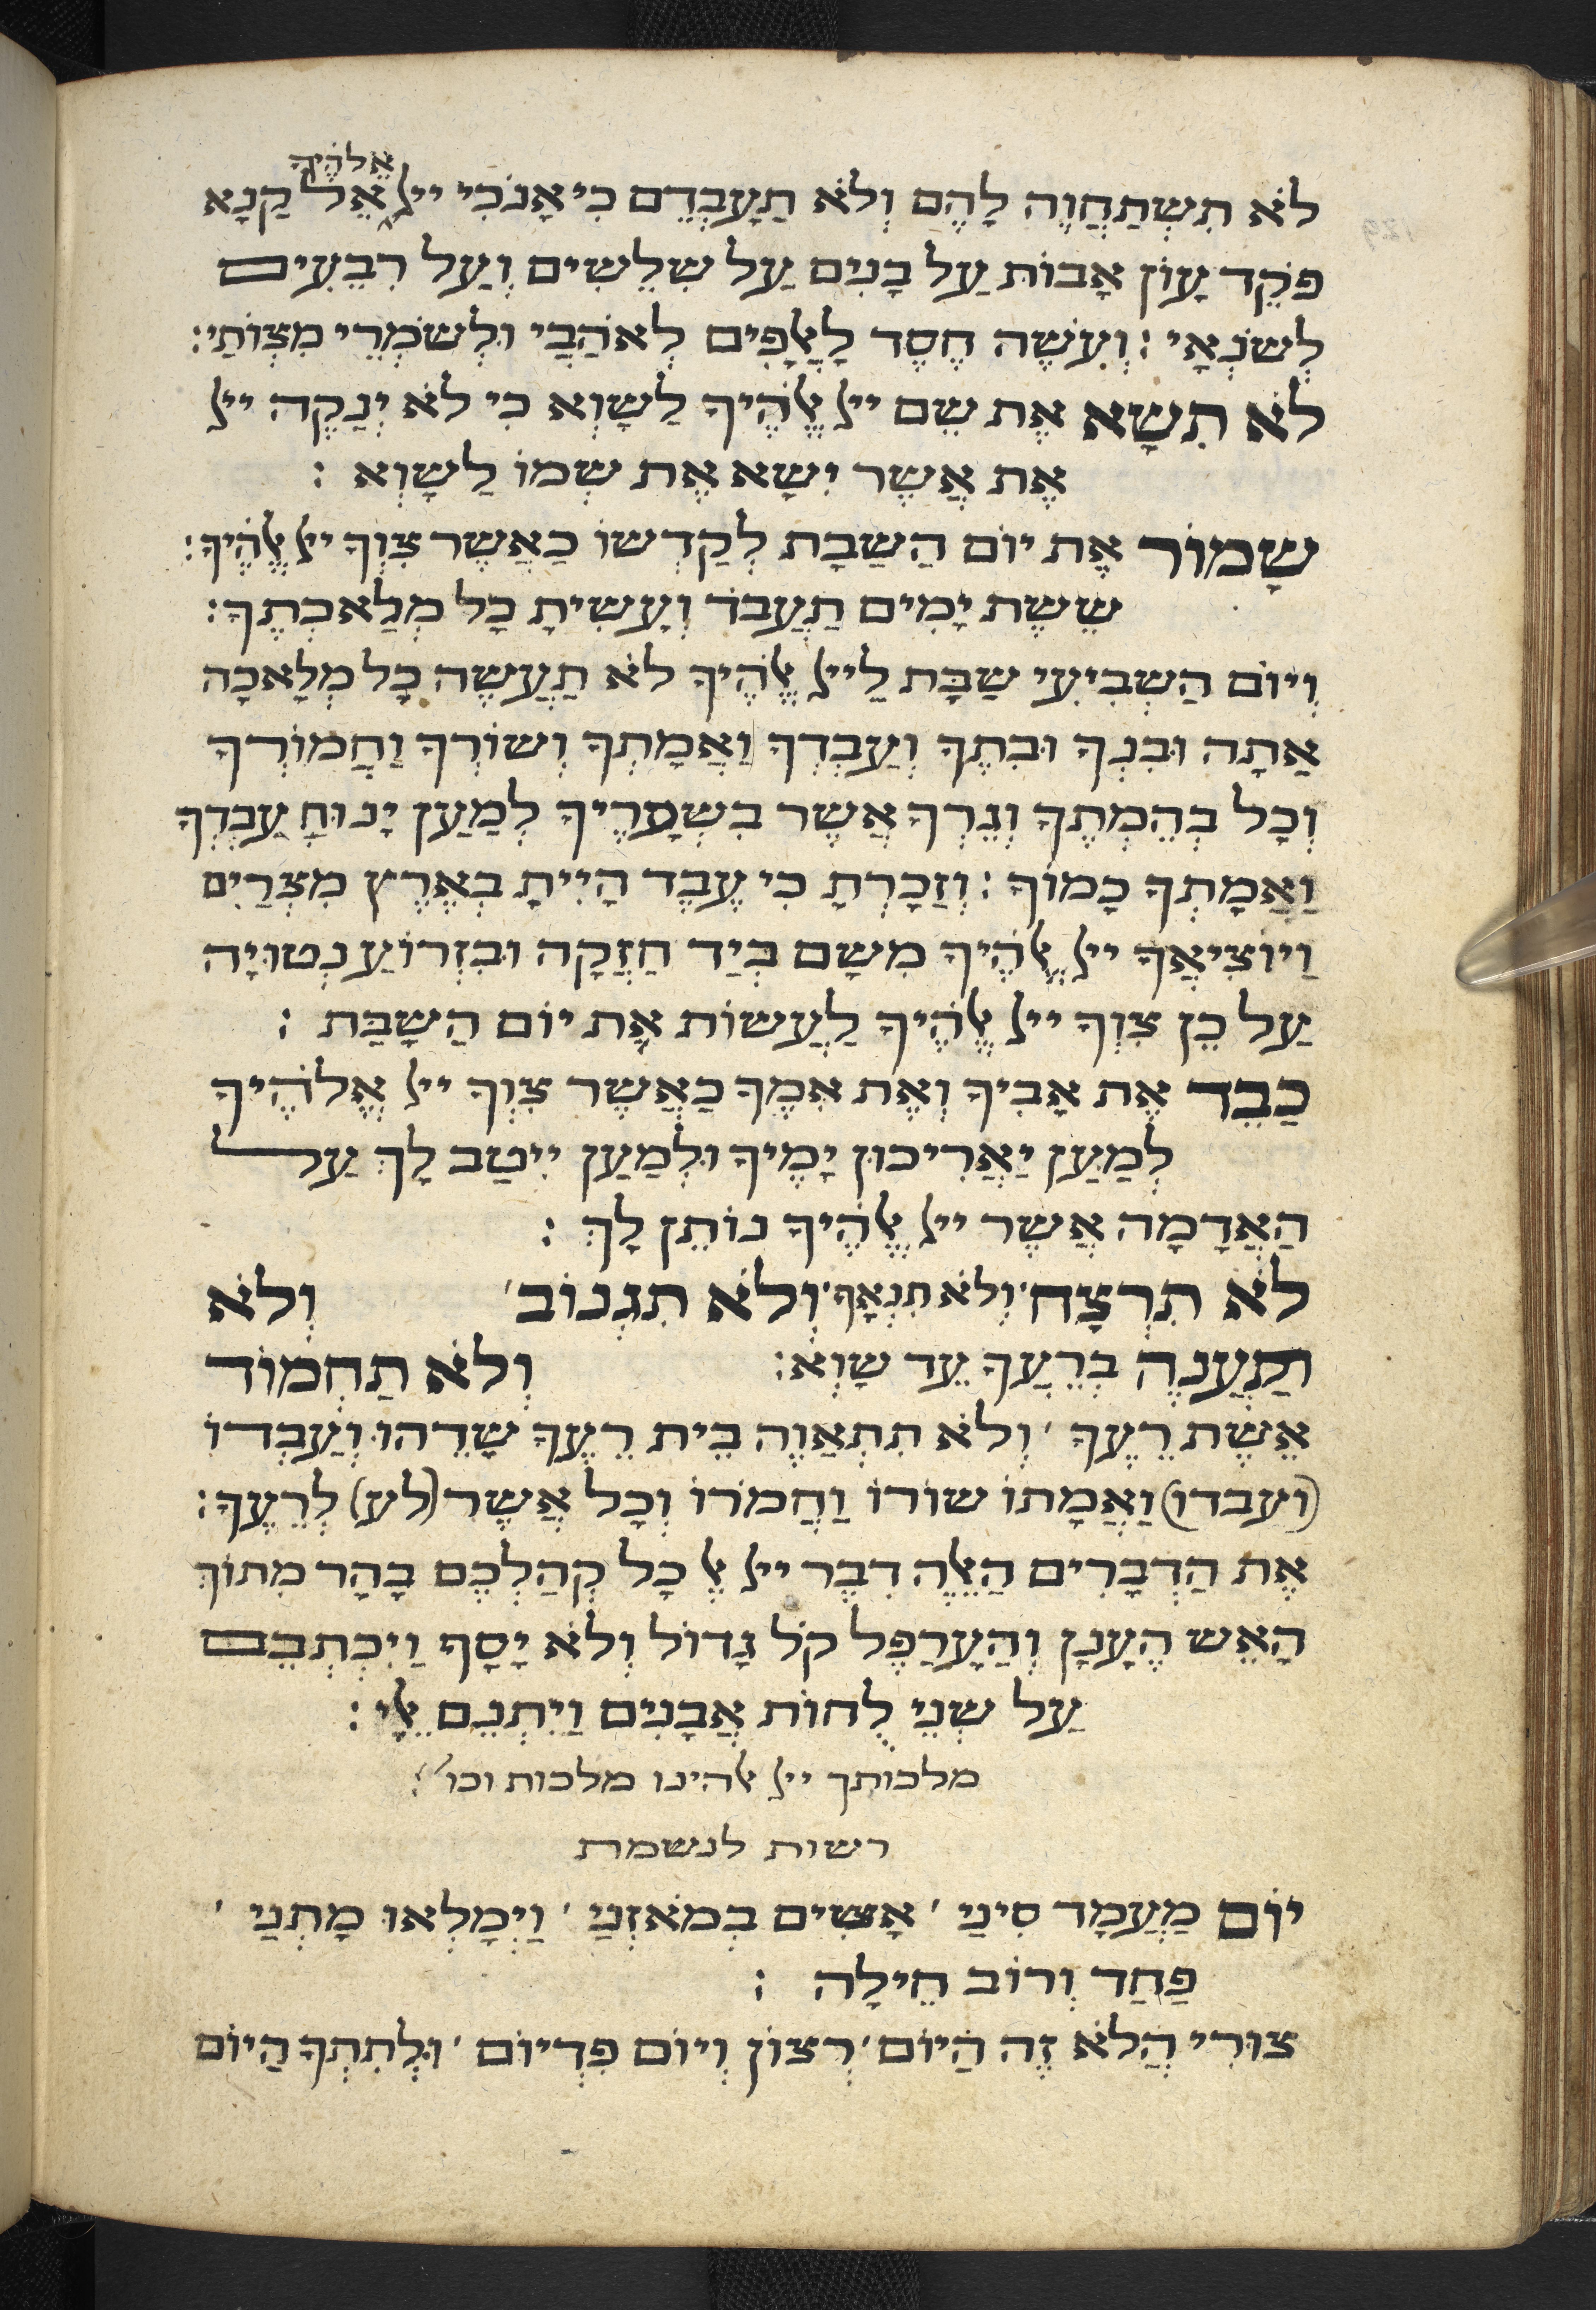 אֱלֹהֶיךָ
לֹא תִשְׁתַחֲוֶה לָהֶם וְלֹא תַעָבְדֵם כִי אָנֹכִי ייָ אֵל קַנָא
פֹּקֵד עָוֹן אָבוֹת עַל בָנִים עַל שִלֵשִים וְעַל רִבֵעִים
לְשֹנְאָי : וְעֹשֶה חֶסֶד לַאֲלָפִים לְאֹהֲבַי וּלְשֹמְרֵי מִצְוֹתַי :
לֹא תִשָא אֶת שֵם ייָ אֱלֹהֶיךָ לַשָוְא כִי לֹא יְנַקֶה ייָ
אֶת אֲשֶר יִשָא אֶת שְמוֹ לַשָוְא :
שָמוֹר אֶת יוֹם הַשַבָת לְקַדְשוֹ כַאֲשֶר צִוְךָ ייָ אֱלֹהֶיךָ :
שֵשֶת יָמִים תַעֲבֹד וְעָשִיתָ כָל מְלַאכְתֶךָ :
וְיוֹם הַשְבִיעִי שַבָת לַייָ אֱלֹהֶיךָ לֹא תַעֲשֶה כָל מְלָאכָה
אַתָה וּבִנְךָ וּבִתֶךָ וְעַבְדְךָ וַאֲמָתְךָ וְשוֹרְךָ וַחֲמוֹרְךָ
וְכָל בְהֵמְתֶךָ וְגֵרְךָ אֲשֶר בִשְעָרֶיךָ לְמַעַן יָנוּחַ עַבְדְךָ
וַאֲמָתְךָ כָמוֹךָ : וְזָכַרְתָ כִי עֶבֶד הָיִיתָ בְאֶרֶץ מִצְרַיִם
וַיוֹצִיאֲךָ ייָ אֱלֹהֶיךָ מִשָם בְיַד חֲזָקָה וּבִזְרוֹעַ נְטוּיָה
עַל כֵן צִוְךָ ייָ אֱלֹהֶיךָ לַעֲשוֹת אֶת יוֹם הַשַבָת :
כַבֵד אֶת אָבִיךָ וְאֶת אִמֶךָ כַאֲשֶר צִוְךָ ייָ אֱלֹהֶיךָ
לְמַעַן יַאֲרִיכוּן יָמֶיךָ וּלְמַעַן יִיטַב לָךְ עַל
הַאֲדָמָה אֲשֶר ייָ אֱלֹהֶיךָ נוֹתֵן לָךְ :
לֹא תִרְצָח ׳ וְלֹא תִנְאָף ׳ וְלֹא תִגְנוֹב ׳ וְלֹא
תַעֲנֶה בְרֵעֲךָ עֵד שָוְא : וְלֹא תַחְמוֹד
אֵשֶת רֵעֶךָ ׳ וְלֹא תִתְאַוֶה בֵית רֵעֶךָ שָדֵהוּ וְעַבְדוֹ
(ועבדו) וַאֲמָתוֹ שוֹרוֹ וַחֲמֹרוֹ וְכָל אֲשֶר (לע) לְרֵעֶךָ :
אֶת הַדְבָרִים הָאֵלֶה דִבֶר ייָ אֶל כָל קְהַלְכֶם בָהָר מִתוֹךְ
הָאֵש הֶעָנָן וְהָעֲרָפֶל קֹל גָדוֹל וְלֹא יָסָף וַיִכְתְבֵם
עַל שְנֵי לֻחוֹת אֲבָנִים וַיִתְנֵם אֵלָי :
מלכותך ייָ אלהינו מלכות וכו׳ :
רשות לנשמת
יוֹם מַעֲמָד סִינַי ׳ אָשִים בְמֹאזְנַי ׳ וַיִמָלְאוּ מָתְנַי ׳
פַחַד וְרוֹב חֵילָה :
צוּרִי הֲלֹא זֶה הַיוֹם ׳ רָצוֹן וְיוֹם פִדְיוֹם ׳ וּלְתִתְךָ הַיוֹם